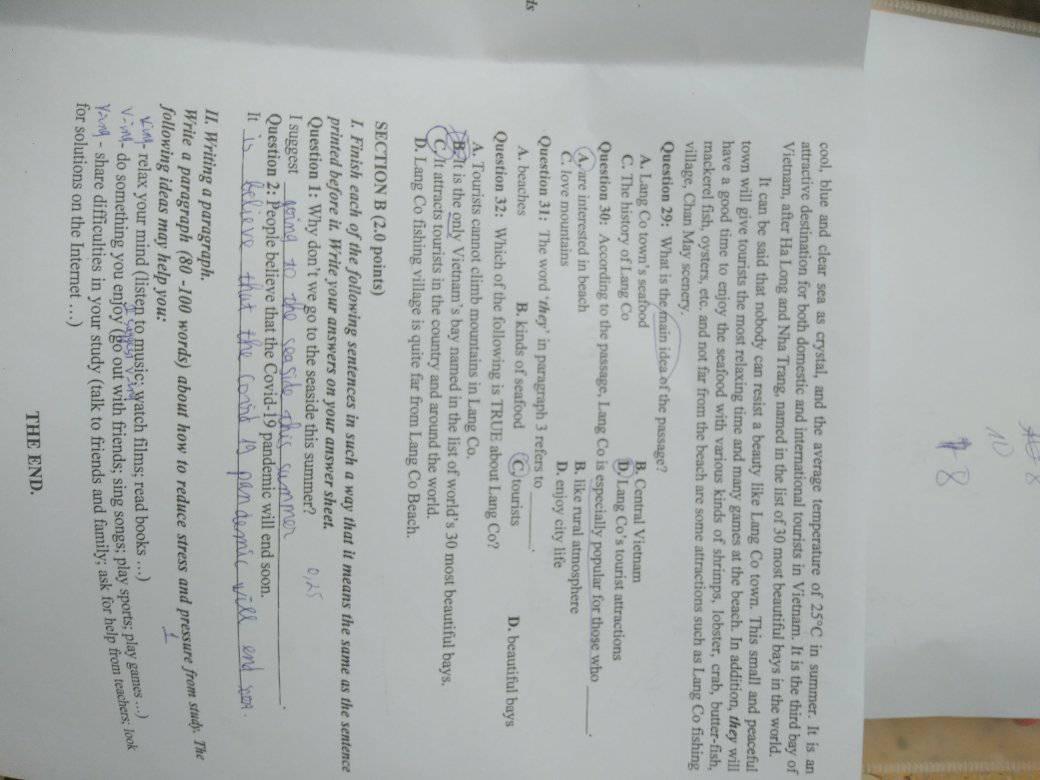 cool, blue and clear sea as crystal, and the average temperature of 25°C in summer. It is an
attractive destination for both domestic and international tourists in Vietnam. It is the third bay of
Vietnam, after Ha Long and Nha Trang, named in the list of 30 most beautiful bays in the world.
It can be said that nobody can resist a beauty like Lang Co town. This small and peaceful
town will give tourists the most relaxing time and many games at the beach. In addition, they will
have a good time to enjoy the seafood with various kinds of shrimps, lobster, crab, butter-fish,
mackerel fish, oysters, etc. and not far from the beach are some attractions such as Lang Co fishing
village, Chan May scenery.
Question 29: What is the main idea of the passage?
A. Lang Co town's seafood B. Central Vietnam
C. The history of Lang Co D. Lang Co's tourist attractions
Question 30: According to the passage, Lang Co is especially popular for those who ______.
A. are interested in beach B. like rural atmosphere
C. love mountains D. enjoy city life
Question 31: The word 'they' in paragraph 3 refers to ______.
A. beaches B. kinds of seafood C. tourists D. beautiful bays
Question 32: Which of the following is TRUE about Lang Co?
A. Tourists cannot climb mountains in Lang Co.
B. It is the only Vietnam's bay named in the list of world's 30 most beautiful bays.
C. It attracts tourists in the country and around the world.
D. Lang Co fishing village is quite far from Lang Co Beach.
SECTION B (2.0 points)
I. Finish each of the following sentences in such a way that it means the same as the sentence
printed before it. Write your answers on your answer sheet.
Question 1: Why don't we go to the seaside this summer? 0,25
I suggest going to the seaside this summer
Question 2: People believe that the Covid-19 pandemic will end soon.
It is believe that the Covid 19 pandemic will end soon.
II. Writing a paragraph. 1
Write a paragraph (80 -100 words) about how to reduce stress and pressure from study. The
following ideas may help you:
V-ing - relax your mind (listen to music; watch films; read books ...)
I suggest V-ing
V-ing - do something you enjoy (go out with friends; sing songs; play sports; play games ...)
V-ing - share difficulties in your study (talk to friends and family; ask for help from teachers; look
for solutions on the Internet ...)
THE END.
10
8